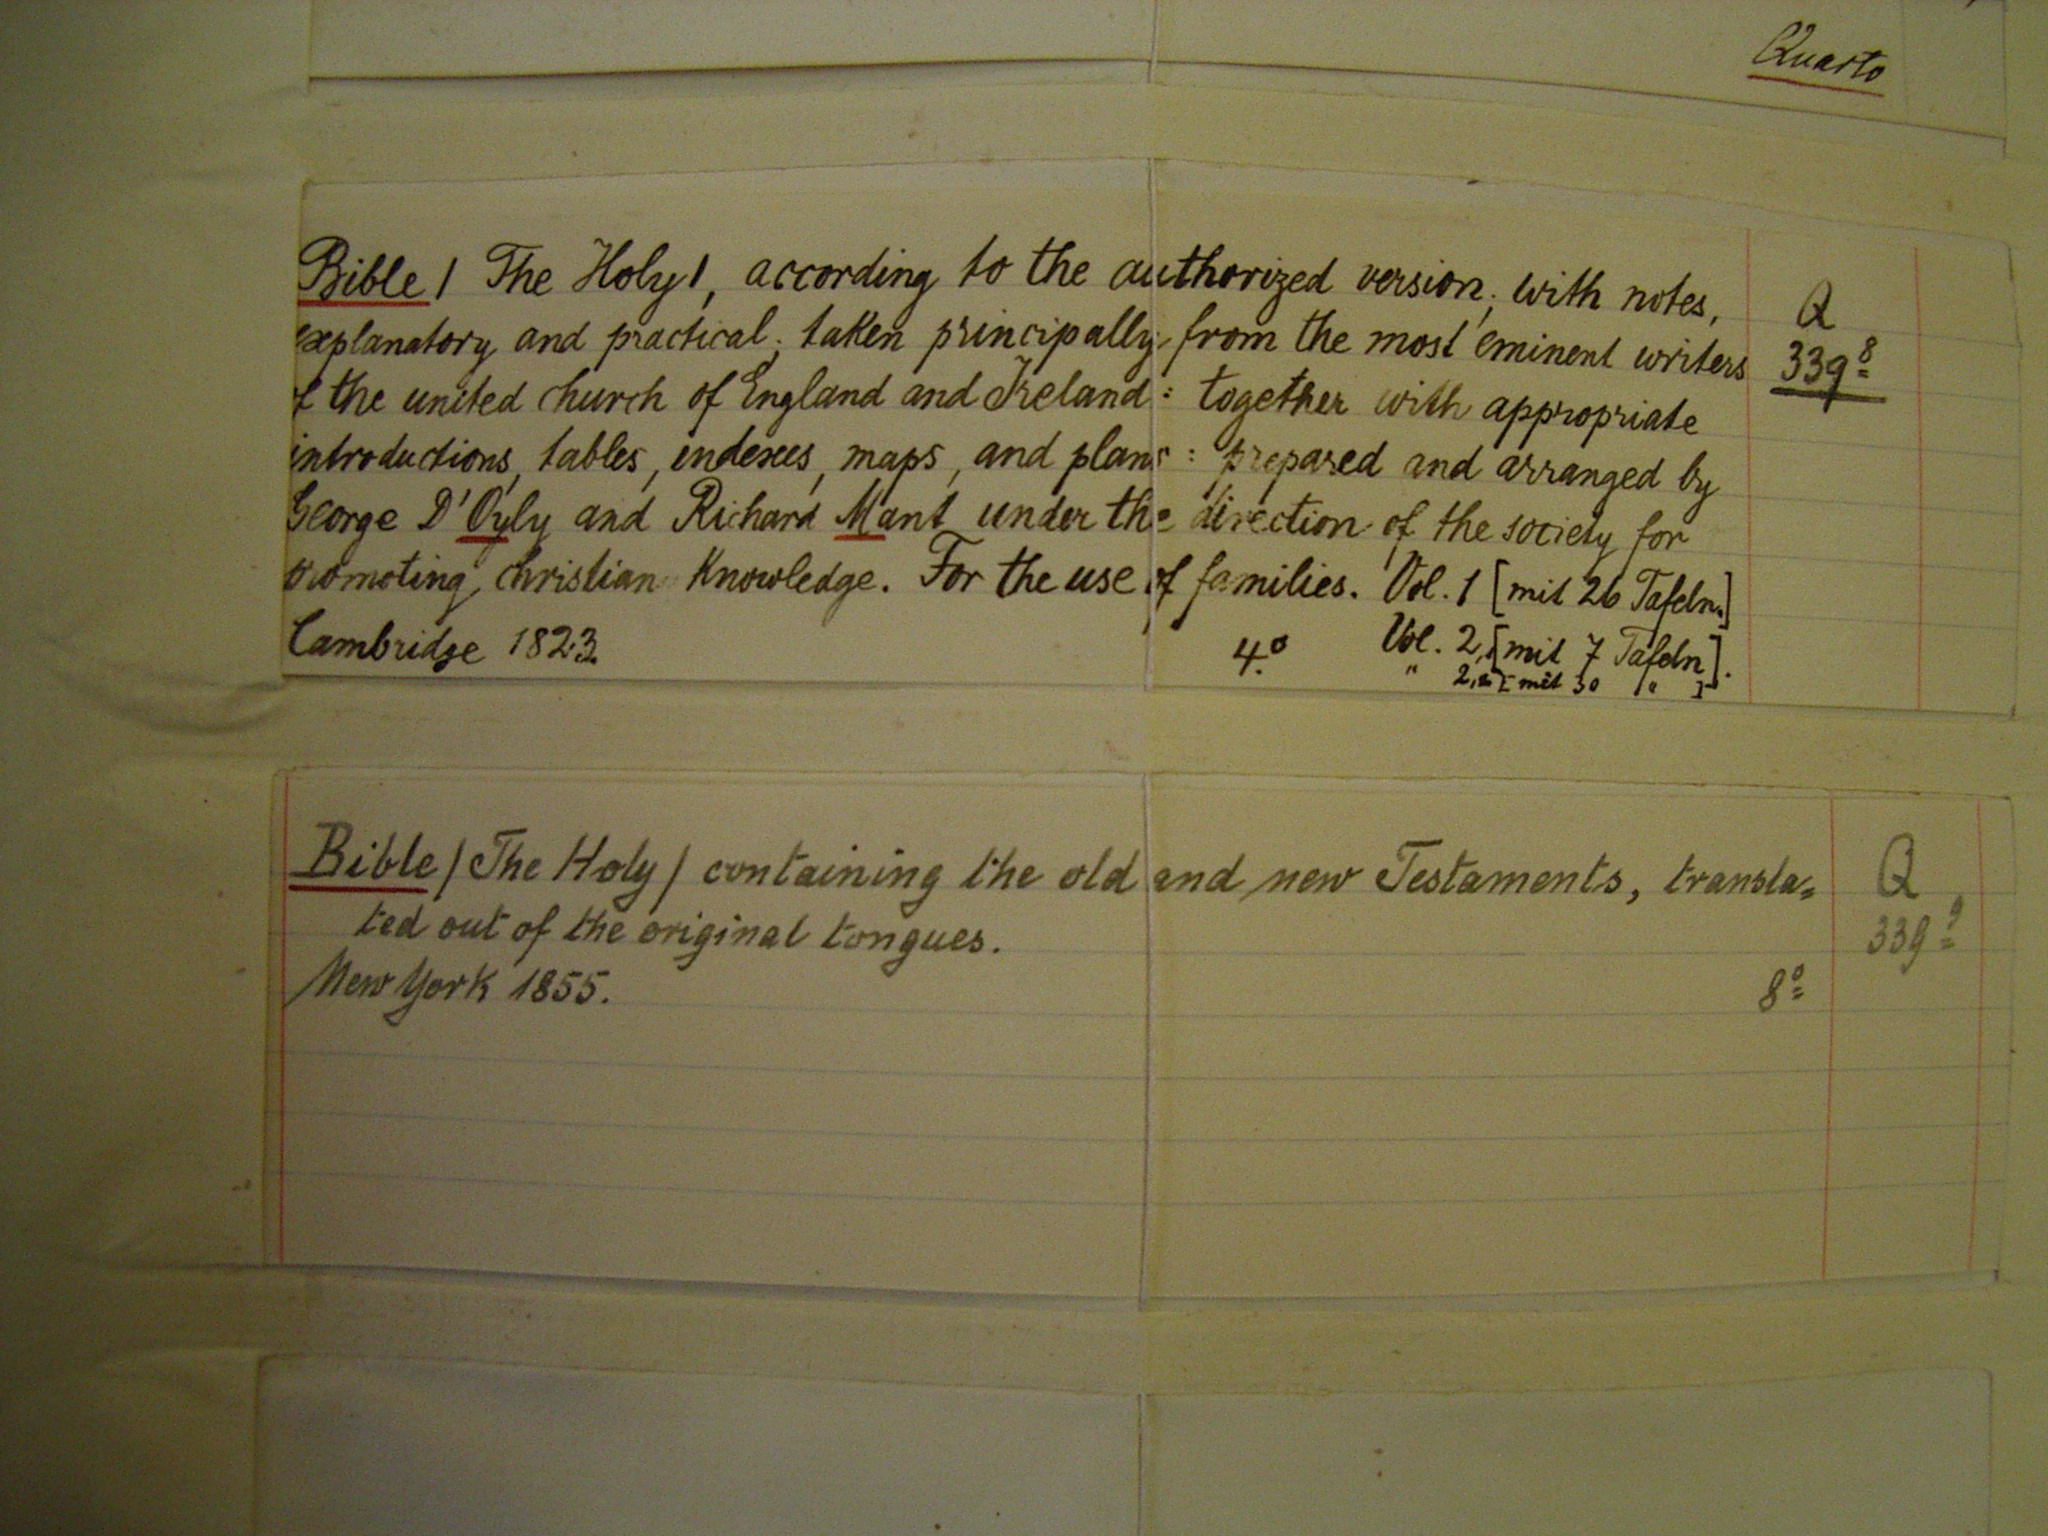 Quarto
Bible / The Holy /, according to the authorized version; with notes,
explanatory and practical; taken principally from the most eminent writers
of the united church of England and Ireland: together with appropriate
introductions, tables, indexes, maps, and plans: prepared and arranged by
George D'Oyly and Richard Mant under the direction of the society for
promoting christian Knowledge. For the use of families. Vol. 1 [mit 26 Tafeln.]
Cambridge 1823. 4.º Vol. 2,1 [mit 7 Tafeln].
" 2,2 [mit 30 " ]
Q
339 8
Bible / The Holy / containing the old and new Testaments, transla=
ted out of the original tongues.
New York 1855.
8º
Q
339 9